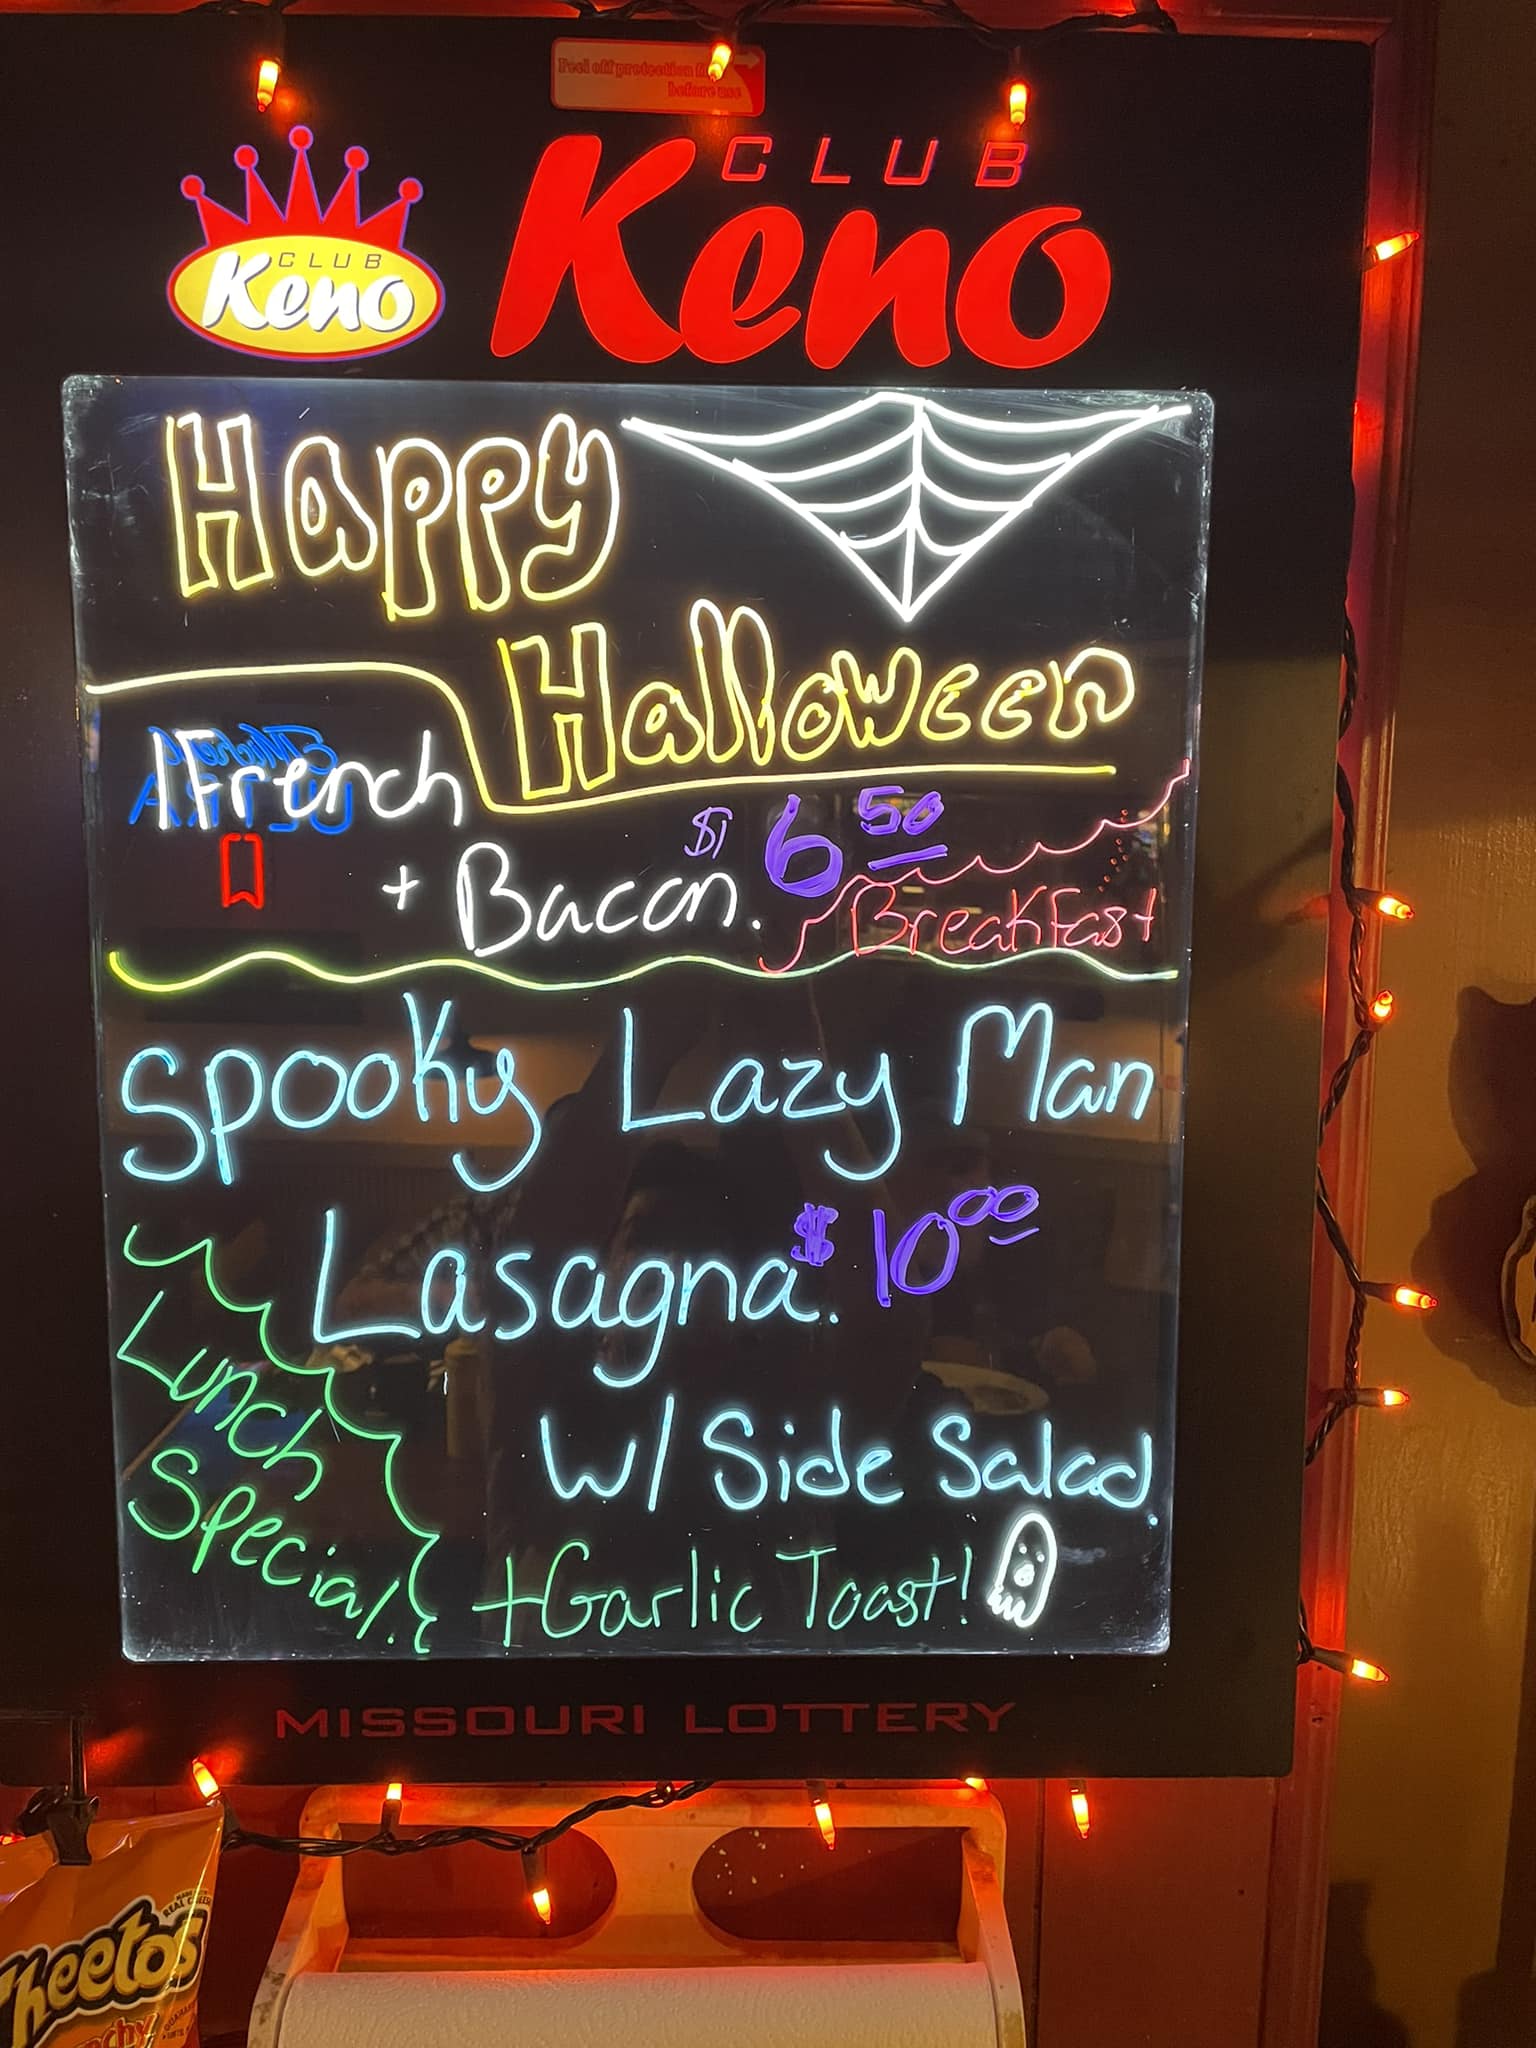 Peel off protection film
before use
CLUB
Keno
CLUB
Keno
Happy
Halloween
French
+ Bacon.
$ 6 50
BreakFast
Spooky Lazy Man
Lasagna. $ 10 00
Lunch
Special.
W/ Side Salad.
+ Garlic Toast!
MISSOURI LOTTERY
Cheetos